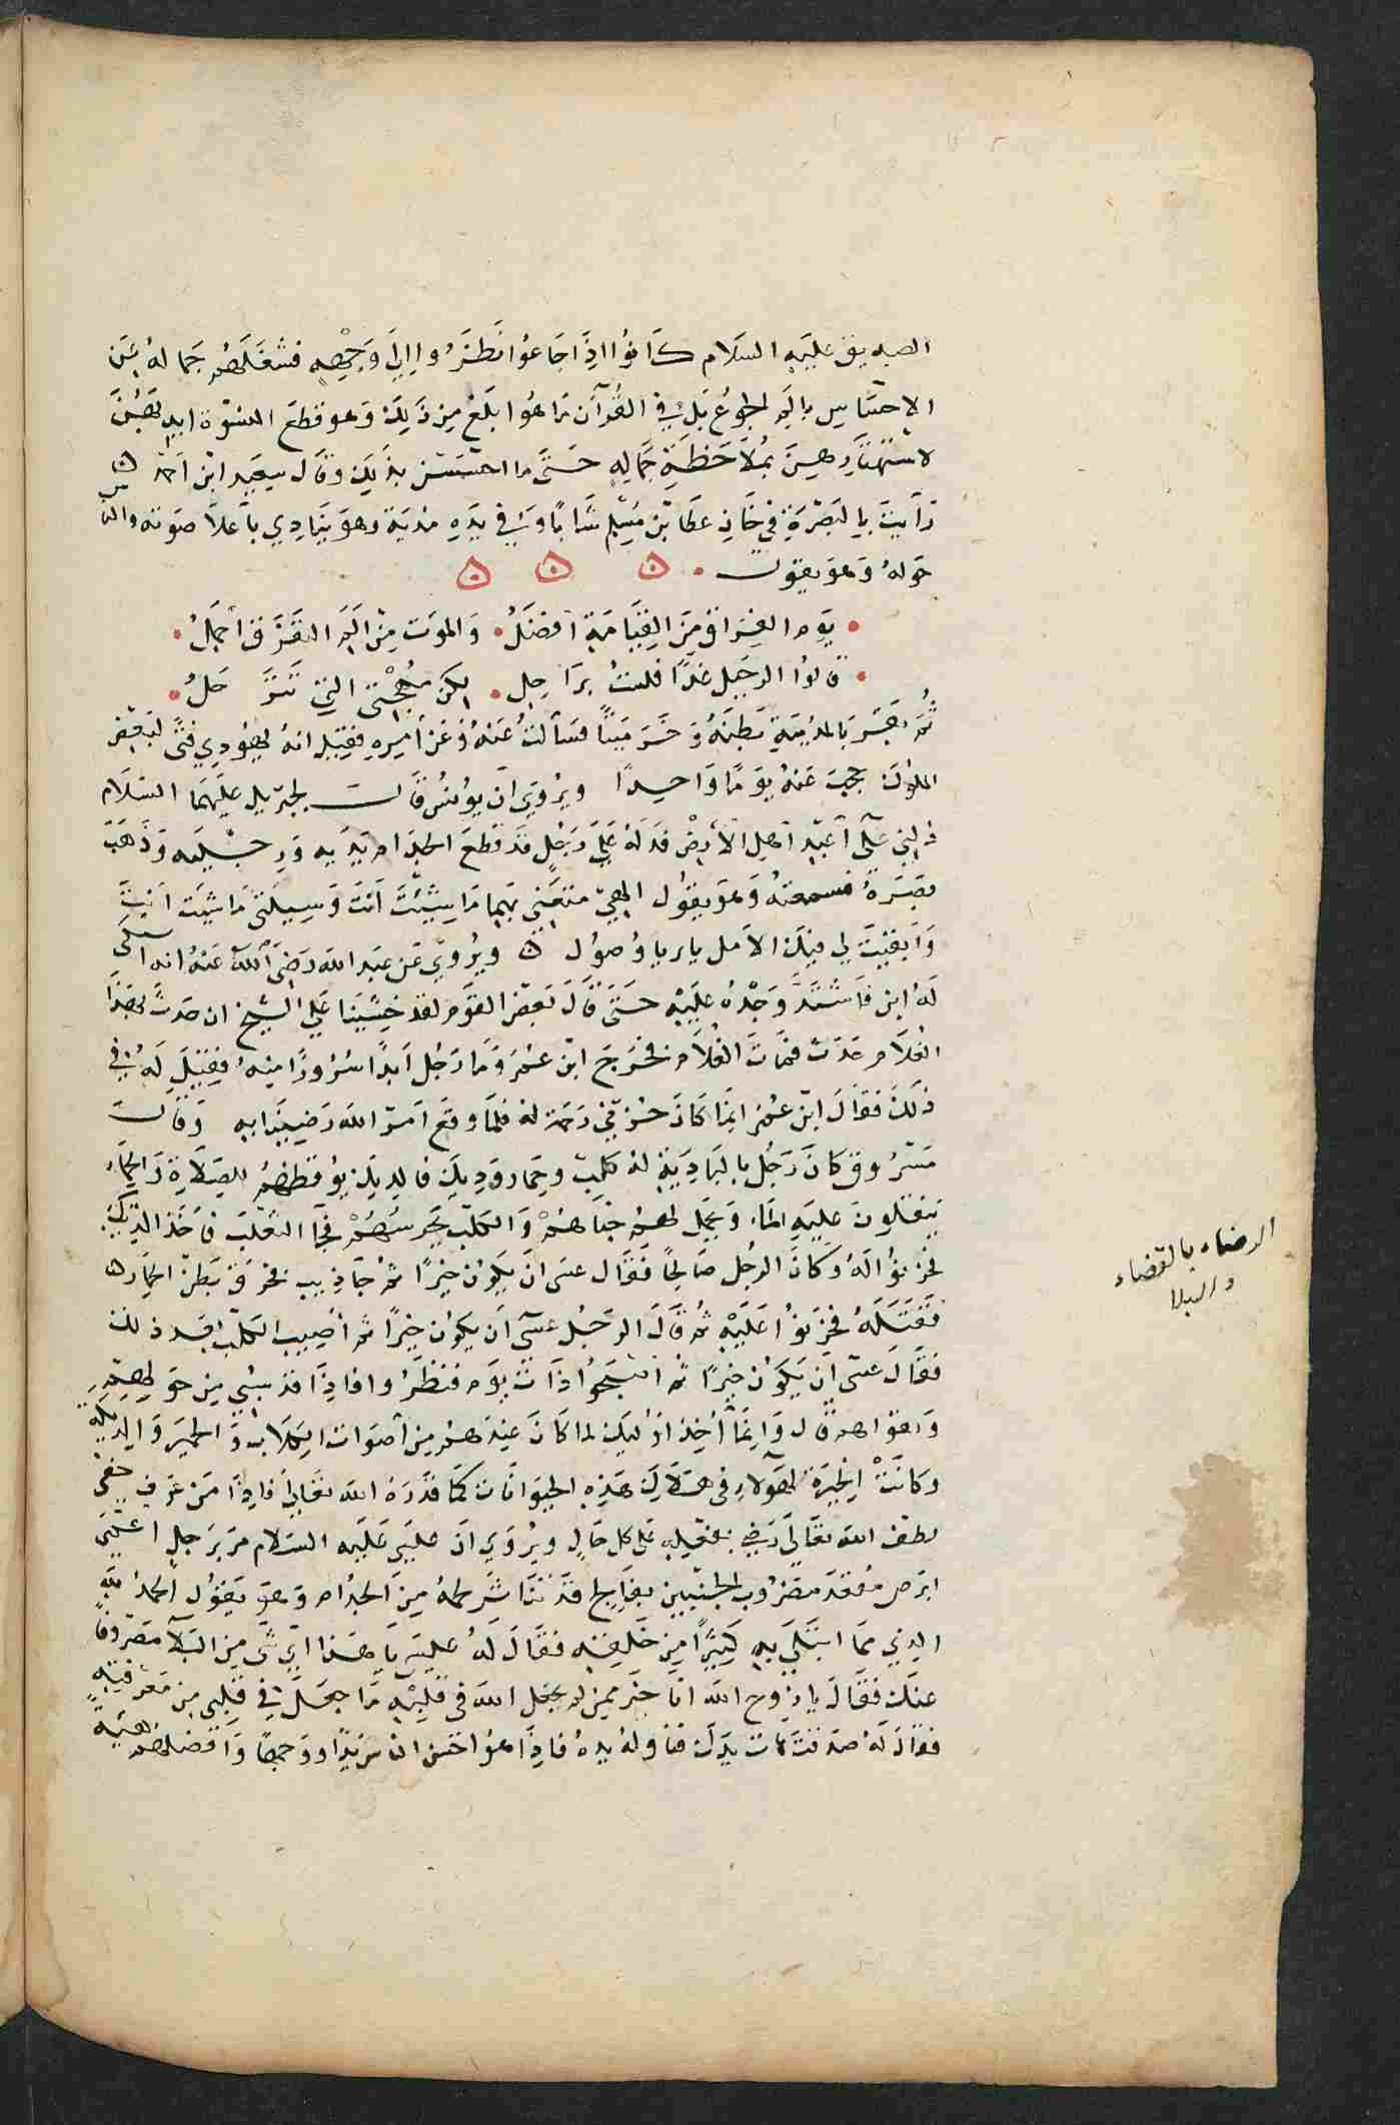 الصديق عليه السلام كانوا اذا جاعوا نظروا الى وجهه فشغلهم جماله عن
الاحساس بالم الجوع بل في القرآن ما هو ابلغ من ذلك وهو قطع النسوة ايديهن
لاستهتارهن بملاحظة جماله حتى ما احسسن بذلك وقال سعيد ابن
رأيت بالبصرة في خان عطا بن مسلم شابا وفي يده مدية وهو ينادي باعلا صوته والناس
حوله وهو يقول
يوم الفراق من القيامة افضل والموت من الم التفرق اجمل
قالوا الرحيل غدا فلست براحل لكن مهجتي التي تتر حل
ثم بقر بالمدية بطنه وخر ميتا فسألت عنه وعن أمره فقيل انه يهوي فتى لبعض
الملوك حجب عنه يوما واحدا ويروي ان يونس قال لجبريل عليهما السلام
دلني على أعبد اهل الأرض فدله على رجل قد قطع الجذام يديه ورجليه وذهب
بصره فسمعته وهو يقول الهي متعتني بهما ما شئت أنت وسلبتني ما شئت انت
وابقيت لي فيك الامل يا بر يا وصول ويروي عن عبد الله رضي الله عنه انه اشتكى
له ابن فاشتد وجده عليه حتى قال بعض القوم لقد خشينا على الشيخ ان حدث بهذا
الغلام حدث فمات الغلام فخرج ابن عمر وما رجل ابدا سرورا منه فقيل له في
ذلك فقال ابن عمر انما كان حزني رحمة له فلما وقع امر الله رضينا به وقال
مسروق كان رجل بالبادية له كلب وحمار وديك فالديك يوقظهم للصلاة والحمار
ينقلون عليه الماء ويحمل لهم خباهم والكلب يحرسهم فجا الثعلب فأخذ الديك
فحزنوا له وكان الرجل صالحا فقال عسى ان يكون خيرا ثم جا ذيب فخرق بطن الحمار
فقتله فحزنوا عليه ثم قال الرجل عسى ان يكون خيرا ثم أصيب الكلب بعد ذلك
فقال عسى ان يكون خيرا ثم اصبحوا ذات يوم فنظروا فاذا قد سبي من حولهم
وبقوا هم قال وانما أخذ اوليك لما كان عندهم من أصوات الكلاب والحمير والديكة
وكانت الخيرة لهولاء في هلاك هذه الحيوانات كما قدره الله تعالى فاذا من عرف خفى
لطف الله تعالى رضي بفعله على كل حال ويروي ان عيسى عليه السلام مر برجل اعمى
ابرص مقعد مضروب الجنبين بفالج قد تناثر لحمه من الجذام وهو يقول الحمد لله
الذي مما ابتلي به كثيرا من خلقه فقال له عيسى يا هذا اي شي من البلآ مصروفا
عنك فقال يا روح الله انا خير ممن لم يجعل الله في قلبه ما جعل في قلبي من معرفته
فقال له صدقت هات يدك فناوله يده فاذا هو احسن الناس وجها وافضلهم هيئة
الرضاء بالقضاء
والبلا